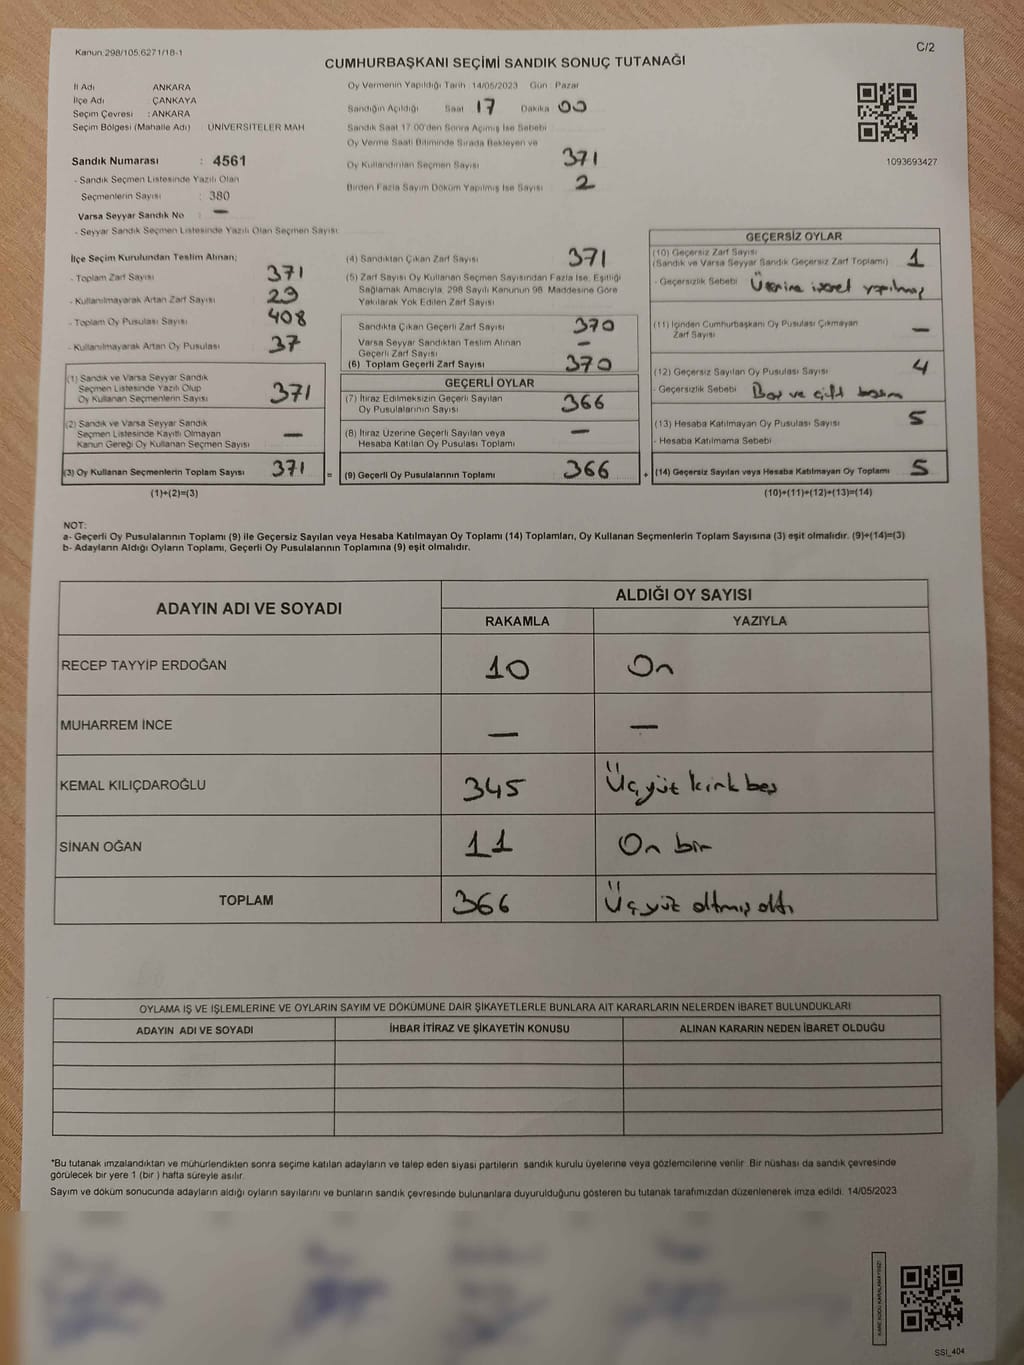 Kanun 298/105,6271/18-1
C/2
CUMHURBAŞKANI SEÇİMİ SANDIK SONUÇ TUTANAĞI
İl Adı ANKARA
İlçe Adı ÇANKAYA
Seçim Çevresi : ANKARA
Seçim Bölgesi (Mahalle Adı) ÜNİVERSİTELER MAH
Sandık Numarası : 4561
- Sandık Seçmen Listesinde Yazılı Olan
Seçmenlerin Sayısı : 380
Varsa Seyyar Sandık No : —
- Seyyar Sandık Seçmen Listesinde Yazılı Olan Seçmen Sayısı:
Oy Vermenin Yapıldığı Tarih 14/05/2023 Gün Pazar
Sandığın Açıldığı Saat 17 Dakika 00
Sandık Saat 17:00'den Sonra Açılmış İse Sebebi
Oy Verme Saati Bitiminde Sırada Bekleyen ve
Oy Kullandırılan Seçmen Sayısı 371
Birden Fazla Sayım Döküm Yapılmış İse Sayısı 2
1093693427
İlçe Seçim Kurulundan Teslim Alınan;
- Toplam Zarf Sayısı 371
- Kullanılmayarak Artan Zarf Sayısı 29
- Toplam Oy Pusulası Sayısı 408
- Kullanılmayarak Artan Oy Pusulası 37
(1) Sandık ve Varsa Seyyar Sandık
Seçmen Listesinde Yazılı Olup
Oy Kullanan Seçmenlerin Sayısı 371
(2) Sandık ve Varsa Seyyar Sandık
Seçmen Listesinde Kayıtlı Olmayan
Kanun Gereği Oy Kullanan Seçmen Sayısı —
(3) Oy Kullanan Seçmenlerin Toplam Sayısı 371 =
(1)+(2)=(3)
(4) Sandıktan Çıkan Zarf Sayısı 371
(5) Zarf Sayısı Oy Kullanan Seçmen Sayısından Fazla İse, Eşitliği
Sağlamak Amacıyla, 298 Sayılı Kanunun 98. Maddesine Göre
Yakılarak Yok Edilen Zarf Sayısı
Sandıkta Çıkan Geçerli Zarf Sayısı 370
Varsa Seyyar Sandıktan Teslim Alınan
Geçerli Zarf Sayısı —
(6) Toplam Geçerli Zarf Sayısı 370
GEÇERLİ OYLAR
(7) İtiraz Edilmeksizin Geçerli Sayılan
Oy Pusulalarının Sayısı 366
(8) İtiraz Üzerine Geçerli Sayılan veya
Hesaba Katılan Oy Pusulası Toplamı —
(9) Geçerli Oy Pusulalarının Toplamı 366 +
GEÇERSİZ OYLAR
(10) Geçersiz Zarf Sayısı
(Sandık ve Varsa Seyyar Sandık Geçersiz Zarf Toplamı) 1
- Geçersizlik Sebebi Üzerine işaret yapılmış
(11) İçinden Cumhurbaşkanı Oy Pusulası Çıkmayan
Zarf Sayısı —
(12) Geçersiz Sayılan Oy Pusulası Sayısı 4
- Geçersizlik Sebebi Boş ve çift basım
(13) Hesaba Katılmayan Oy Pusulası Sayısı 5
- Hesaba Katılmama Sebebi
(14) Geçersiz Sayılan veya Hesaba Katılmayan Oy Toplamı 5
(10)+(11)+(12)+(13)=(14)
NOT:
a- Geçerli Oy Pusulalarının Toplamı (9) ile Geçersiz Sayılan veya Hesaba Katılmayan Oy Toplamı (14) Toplamları, Oy Kullanan Seçmenlerin Toplam Sayısına (3) eşit olmalıdır. (9)+(14)=(3)
b- Adayların Aldığı Oyların Toplamı, Geçerli Oy Pusulalarının Toplamına (9) eşit olmalıdır.
ADAYIN ADI VE SOYADI
ALDIĞI OY SAYISI
RAKAMLA YAZIYLA
RECEP TAYYİP ERDOĞAN 10 On
MUHARREM İNCE — —
KEMAL KILIÇDAROĞLU 345 Üçyüz kırk beş
SİNAN OĞAN 11 On bir
TOPLAM 366 Üçyüz altmış altı
OYLAMA İŞ VE İŞLEMLERİNE VE OYLARIN SAYIM VE DÖKÜMÜNE DAİR ŞİKAYETLERLE BUNLARA AİT KARARLARIN NELERDEN İBARET BULUNDUKLARI
ADAYIN ADI VE SOYADI İHBAR İTİRAZ VE ŞİKAYETİN KONUSU ALINAN KARARIN NEDEN İBARET OLDUĞU
*Bu tutanak imzalandıktan ve mühürlendikten sonra seçime katılan adayların ve talep eden siyasi partilerin sandık kurulu üyelerine veya gözlemcilerine verilir. Bir nüshası da sandık çevresinde
görülecek bir yere 1 (bir ) hafta süreyle asılır.
Sayım ve döküm sonucunda adayların aldığı oyların sayılarını ve bunların sandık çevresinde bulunanlara duyurulduğunu gösteren bu tutanak tarafımızdan düzenlenerek imza edildi. 14/05/2023
KARE KODU KARALAMAYINIZ!
SSI_404